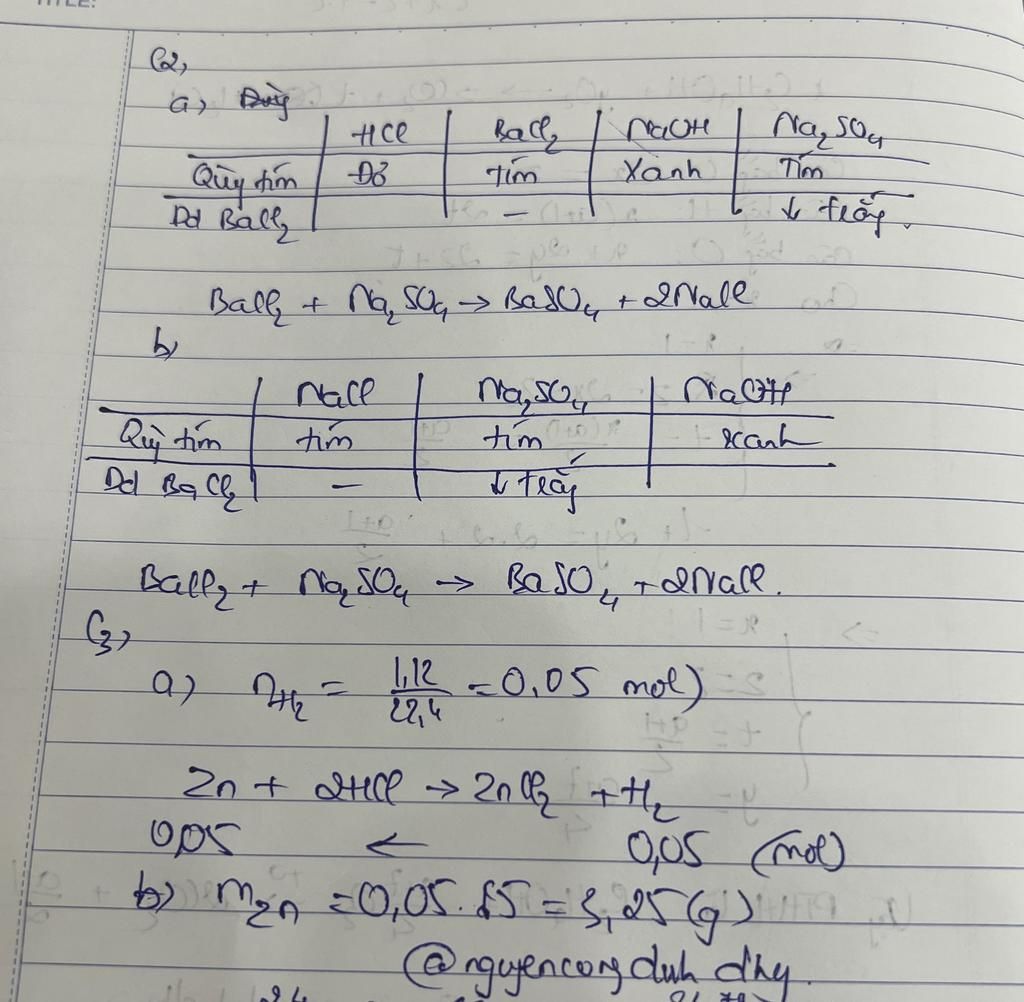 TITLE:
C2,
a,
HCl | BaCl2 | NaOH | Na2SO4
Quỳ tím | Đỏ | tím | Xanh | Tím
Dd BaCl2 | | – | | ↓ trắng.
BaCl2 + Na2SO4 → BaSO4 + 2NaCl
b,
NaCl | Na2SO4 | NaOH
Quỳ tím | tím | tím | xanh
Dd BaCl2 | – | ↓ trắng
BaCl2 + Na2SO4 → BaSO4 + 2NaCl.
C3,
a) nH2 = 1,12/22,4 = 0,05 mol)
Zn + 2HCl → ZnCl2 + H2
0,05 ← 0,05 (mol)
b) mZn = 0,05.65 = 3,25(g)